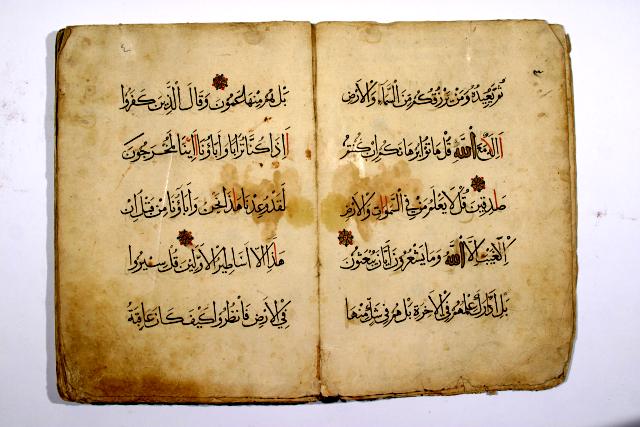 ٣
ثم يعيده ومن يرزقكم من السماء والارض
االه مع الله قل هاتوا برهانكم ان كنتم
صادقين قل لا يعلم من في السموات والارض
الغيب الا الله وما يشعرون ايان يبعثون
بل ادارك علمهم في الاخرة بل هم في شك منها
٤
بل هم منها عمون وقال الذين كفروا
ااذا كنا ترابا واباؤنا ااينا لمخرجون
لقد وعدنا هذا نحن واباؤنا من قبل ان
هاذا الا اساطير الاولين قل سيروا
في الارض فانظروا كيف كان عاقبة